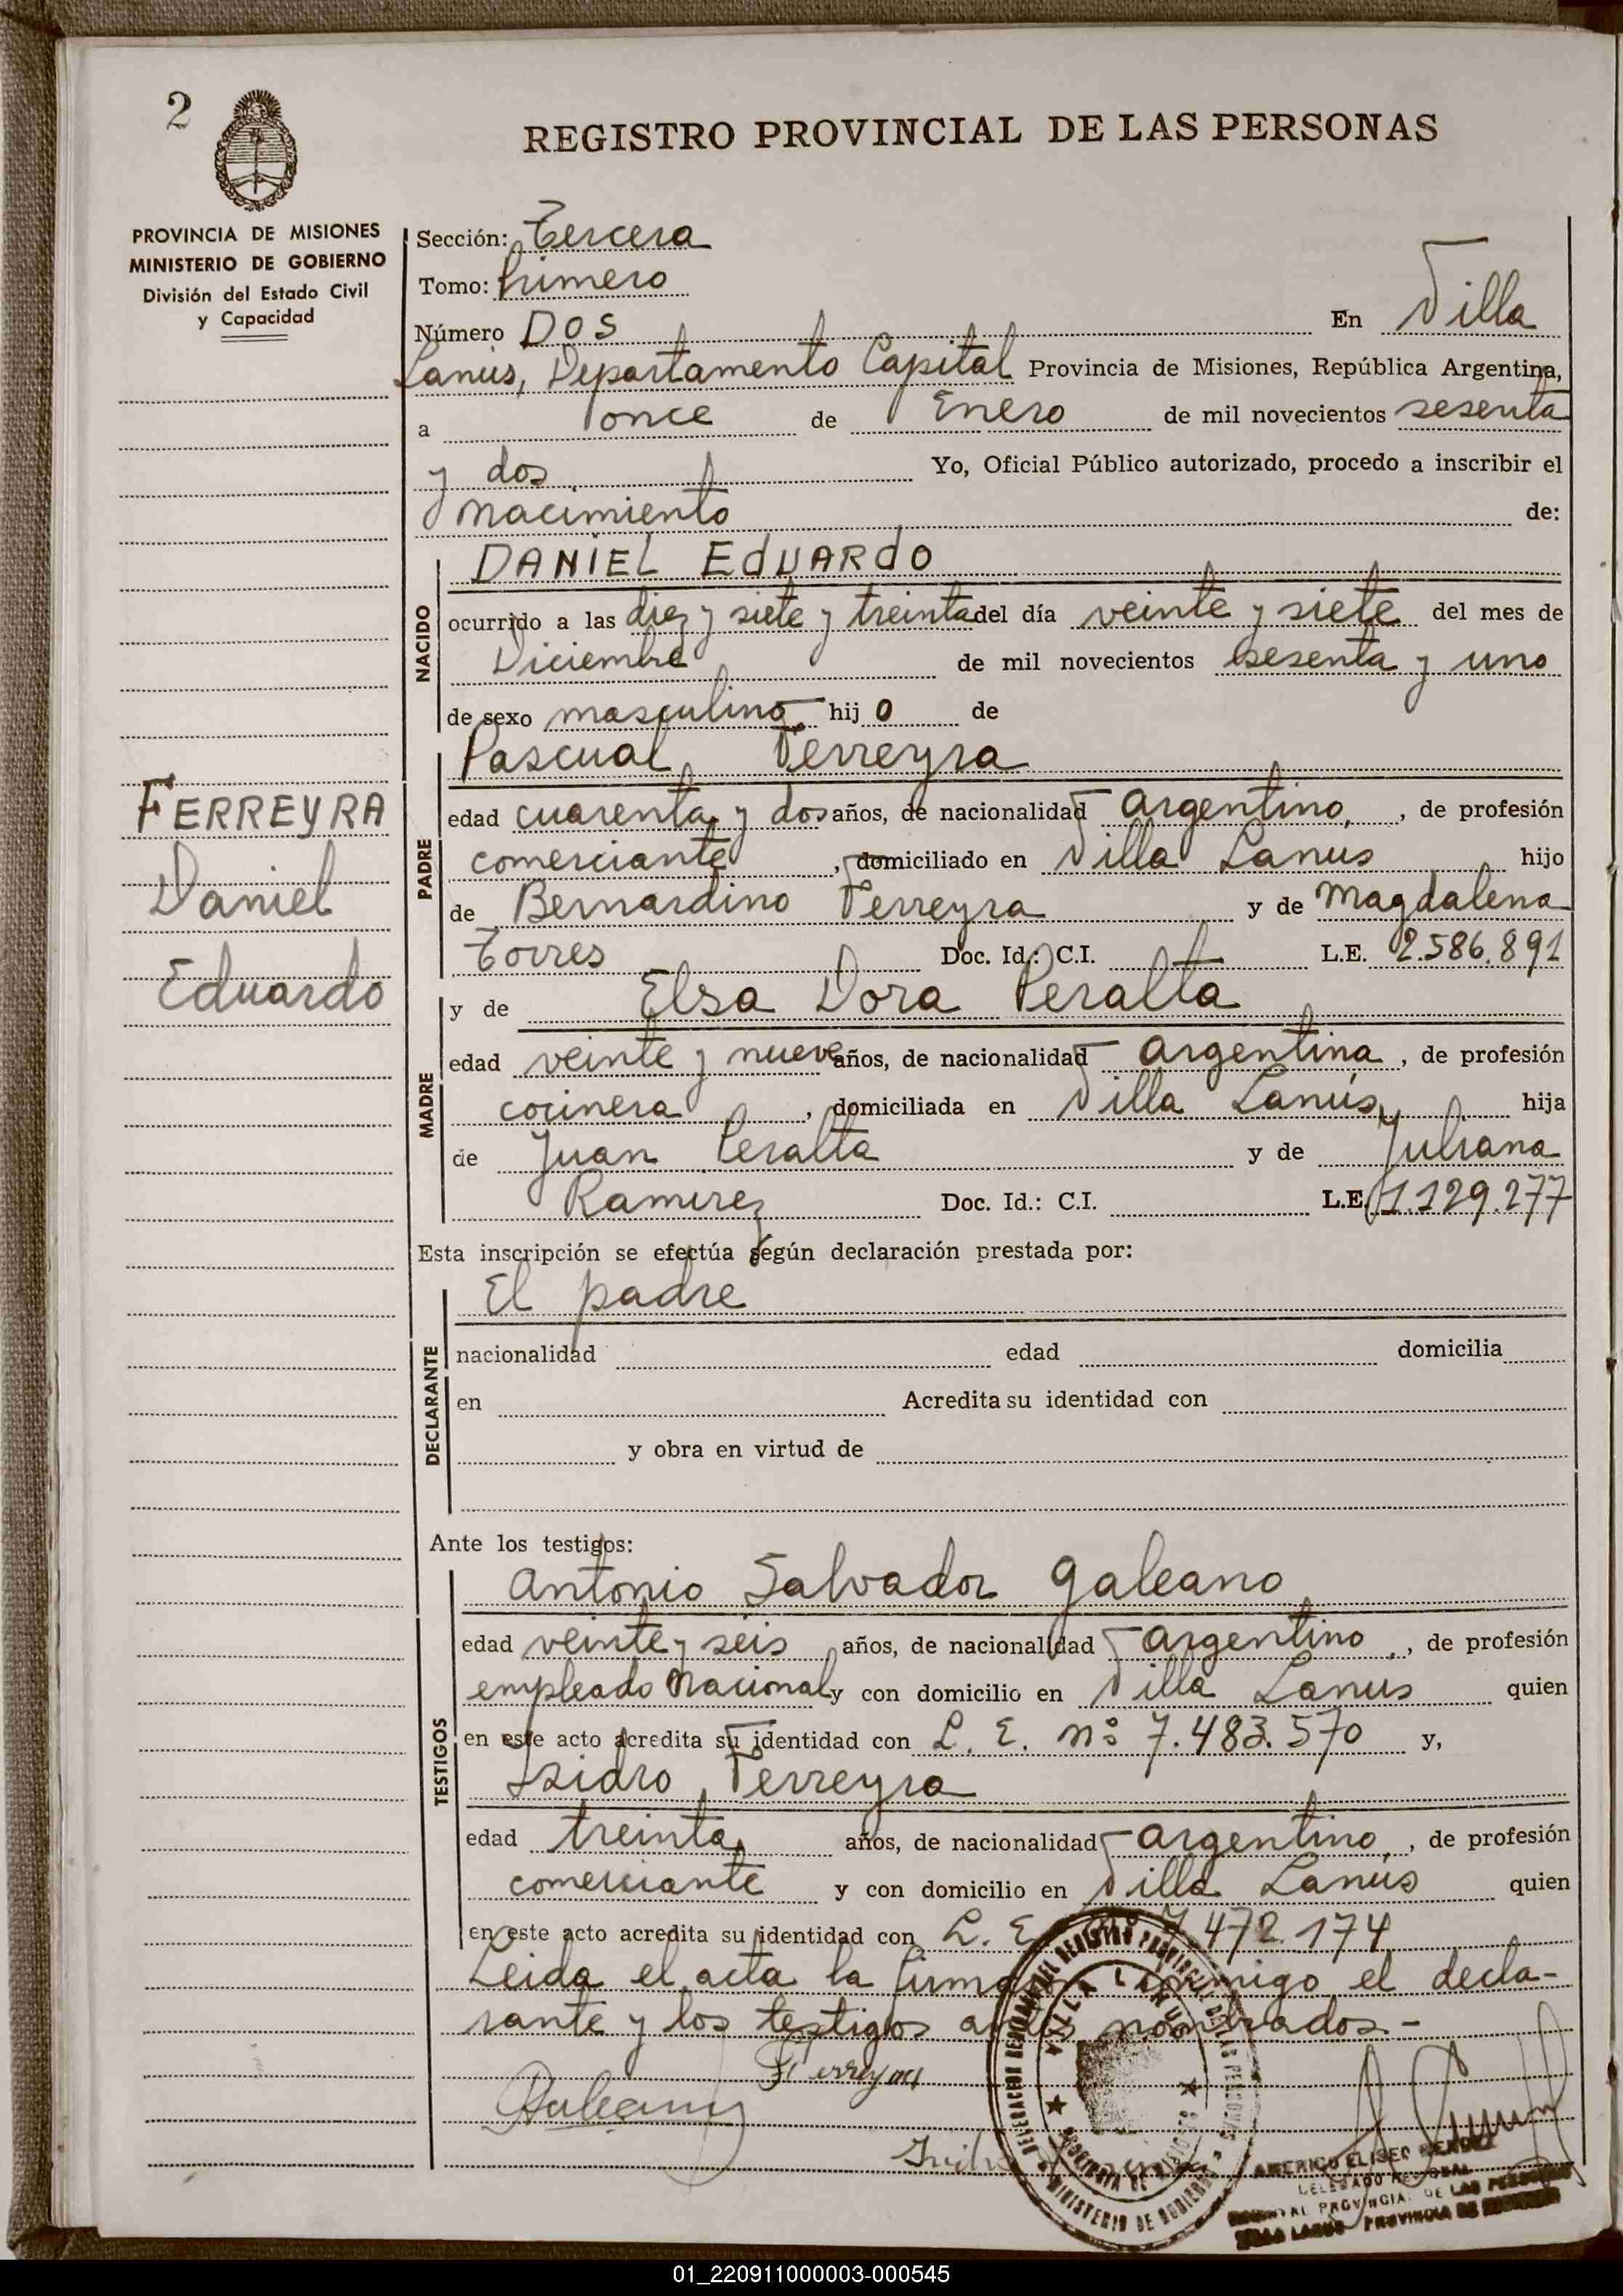 2
REGISTRO PROVINCIAL DE LAS PERSONAS
PROVINCIA DE MISIONES
MINISTERIO DE GOBIERNO
División del Estado Civil
y Capacidad
FERREYRA
Daniel
Eduardo
Sección: Tercera
Tomo: Primero
Número DOS En Villa
Lanús, Departamento Capital Provincia de Misiones, República Argentina,
a once de Enero de mil novecientos sesenta
y dos Yo, Oficial Público autorizado, procedo a inscribir el
nacimiento de:
NACIDO
DANIEL EdUARdO
ocurrido a las diez y siete y treinta del día veinte y siete del mes de
Diciembre de mil novecientos sesenta y uno
de sexo masculino, hij o de
PADRE
Pascual Ferreyra
edad cuarenta y dos años, de nacionalidad argentino, , de profesión
comerciante , domiciliado en Villa Lanus hijo
de Bernardino Ferreyra y de Magdalena
Torres Doc. Id.: C.I. L.E. 2.586.891
MADRE
y de Elsa Dora Peralta
edad veinte y nueve años, de nacionalidad argentina , de profesión
cocinera , domiciliada en Villa Lanús, hija
de Juan Peralta y de Juliana
Ramirez Doc. Id.: C.I. L.E. 1.129.277
Esta inscripción se efectúa según declaración prestada por:
DECLARANTE
El padre
nacionalidad edad domicilia
en Acredita su identidad con
y obra en virtud de
Ante los testigos:
TESTIGOS
Antonio Salvador Galeano
edad veinte y seis años, de nacionalidad argentino , de profesión
empleado Nacional y con domicilio en Villa Lanus quien
en este acto acredita su identidad con L. E. nº 7.483.570 y,
Isidro Ferreyra
edad treinta años, de nacionalidad argentino, , de profesión
comerciante y con domicilio en Villa Lanús quien
en este acto acredita su identidad con L. E. 7.472.174
Leida el acta la firman conmigo el decla-
rante y los testigos antes nombrados.-
Galeano
Ferreyra
VILLA LANUS
MINISTERIO DE GOBIERNO
PROVINCIA DE MISIONES
AMERICO ELISEO MENDEZ
DELEGADO
PROVINCIAL DE LAS PERSONAS
VILLA LANUS PROVINCIA DE MISIONES
01_220911000003-000545